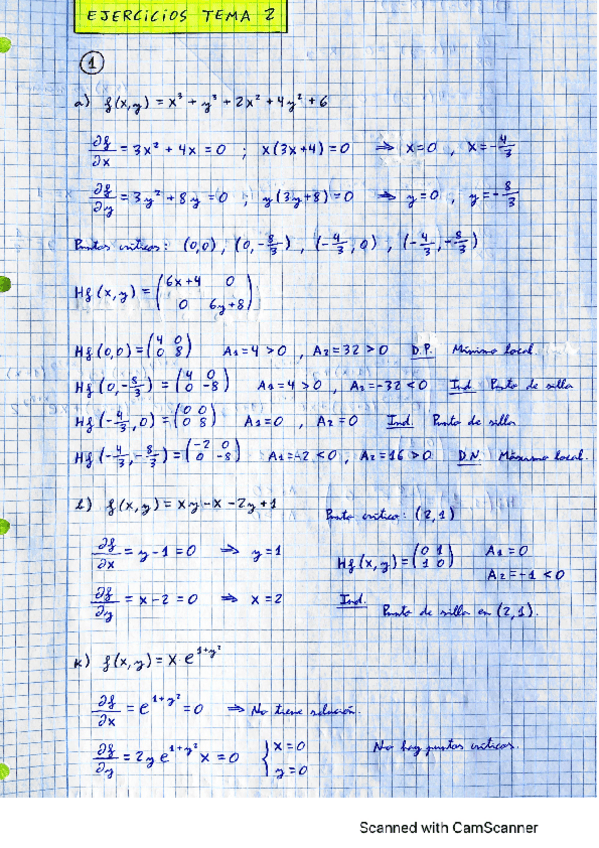 EJERCICIOS TEMA 2
1
a) f(x,y) = x³ + y³ + 2x² + 4y² + 6
∂f/∂x = 3x² + 4x = 0 ; x(3x+4) = 0 ⇒ x=0 , x=-4/3
∂f/∂y = 3y² + 8y = 0 ; y(3y+8) = 0 ⇒ y=0 , y=-8/3
Puntos críticos: (0,0) , (0,-8/3) , (-4/3,0) , (-4/3,-8/3)
Hf(x,y) = (6x+4 0
0 6y+8)
Hf(0,0) = (4 0 0 8) A₁=4>0 , A₂=32>0 D.P. Mínimo local.
Hf(0,-8/3) = (4 0 0 -8) A₁=4>0 , A₂=-32<0 Ind Punto de silla
Hf(-4/3,0) = (0 0 0 8) A₁=0 , A₂=0 Ind. Punto de silla
Hf(-4/3,-8/3) = (-2 0 0 -8) A₁=-2<0 , A₂=16>0 D.N. Máximo local.
b) f(x,y) = xy-x-2y+1
∂f/∂x = y-1=0 ⇒ y=1
∂f/∂y = x-2=0 ⇒ x=2
Punto crítico: (2,1)
Hf(x,y) = (0 1 1 0) A₁=0
A₂=-1<0
Ind. Punto de silla en (2,1).
k) f(x,y) = x·e^(1+y²)
∂f/∂x = e^(1+y²) = 0 ⇒ No tiene solución.
∂f/∂y = 2y e^(1+y²) x = 0 { x=0
y=0
No hay puntos críticos.
Scanned with CamScanner